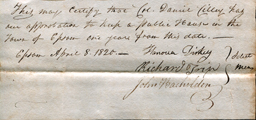 This may Certify that Col. Daniel Cilley has
our approbation to keep a Public House in the
Town of Epsom one year from this date —
Epsom April 8. 1820 — 
Richard Tripp
John
Select
Men